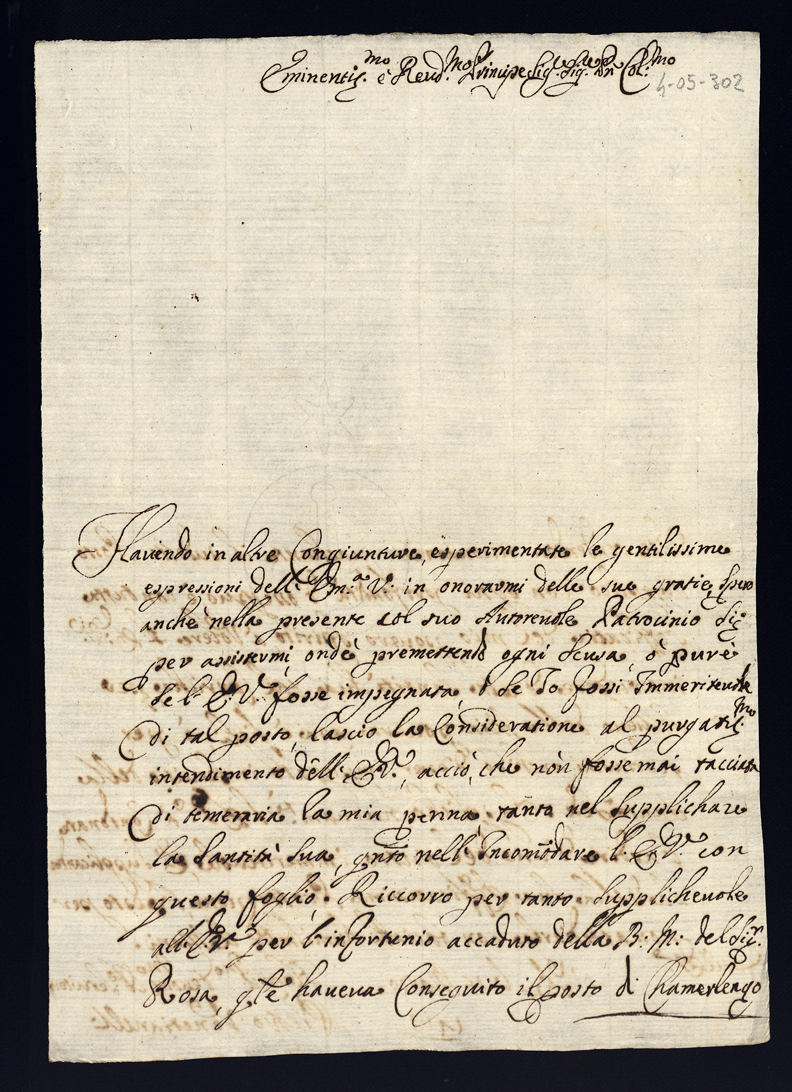 Eminentis.mo è Reud.mo Principe Sig.re Sig.re Pn Col.mo
4-05-302
Havendo in altre Congiunture, esperimentate le gentilissime
espressioni dell' Em.a V. in onorarmi delle sue gratie, spero
anche nella presente col suo Autoreuole Patrocinio sij
per assistermi, onde premettendo ogni scusa, ò pure
se l' E.V. fosse impegnata, ò se Io fossi Immeriteuole
di tal posto, lascio la Consideratione al purgatis.mo
intendimento dell' E.V., acciò, che non fosse mai tacciata
di temeraria la mia penna, tanto nel supplichare
la Santità sua, qnto nell' Incomodare l' E.V. con
questo foglio. Riccorro per tanto supplicheuole
all' E.V. per l'infortunio accaduto della B: M: del Sig.r
Rosa, qle haueua Conseguito il posto di Chamerlengo